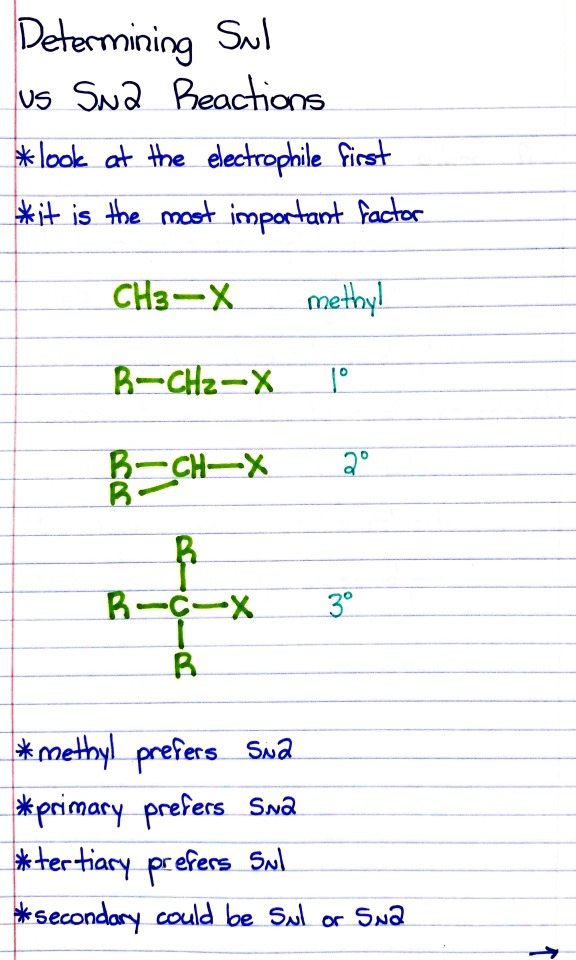 Determining SN1
vs SN2 Reactions
*look at the electrophile first
*it is the most important factor
CH3—X methyl
R—CH2—X 1°
R—CH—X 2°
R
R
R—C—X 3°
R
*methyl prefers SN2
*primary prefers SN2
*tertiary prefers SN1
*secondary could be SN1 or SN2
→